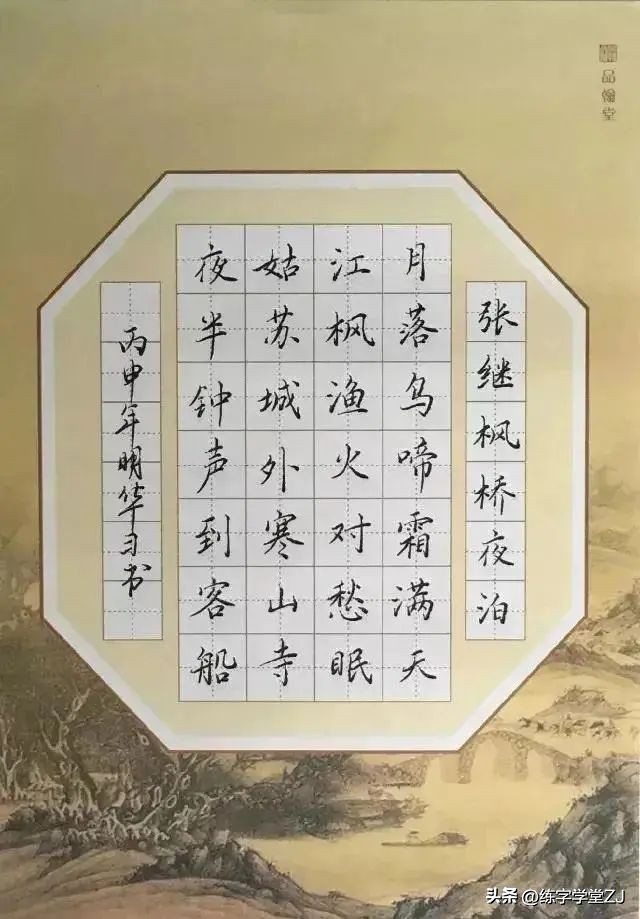 品翰堂
张继枫桥夜泊
月落乌啼霜满天
江枫渔火对愁眠
姑苏城外寒山寺
夜半钟声到客船
丙申年明华习书
头条 @练字学堂ZJ